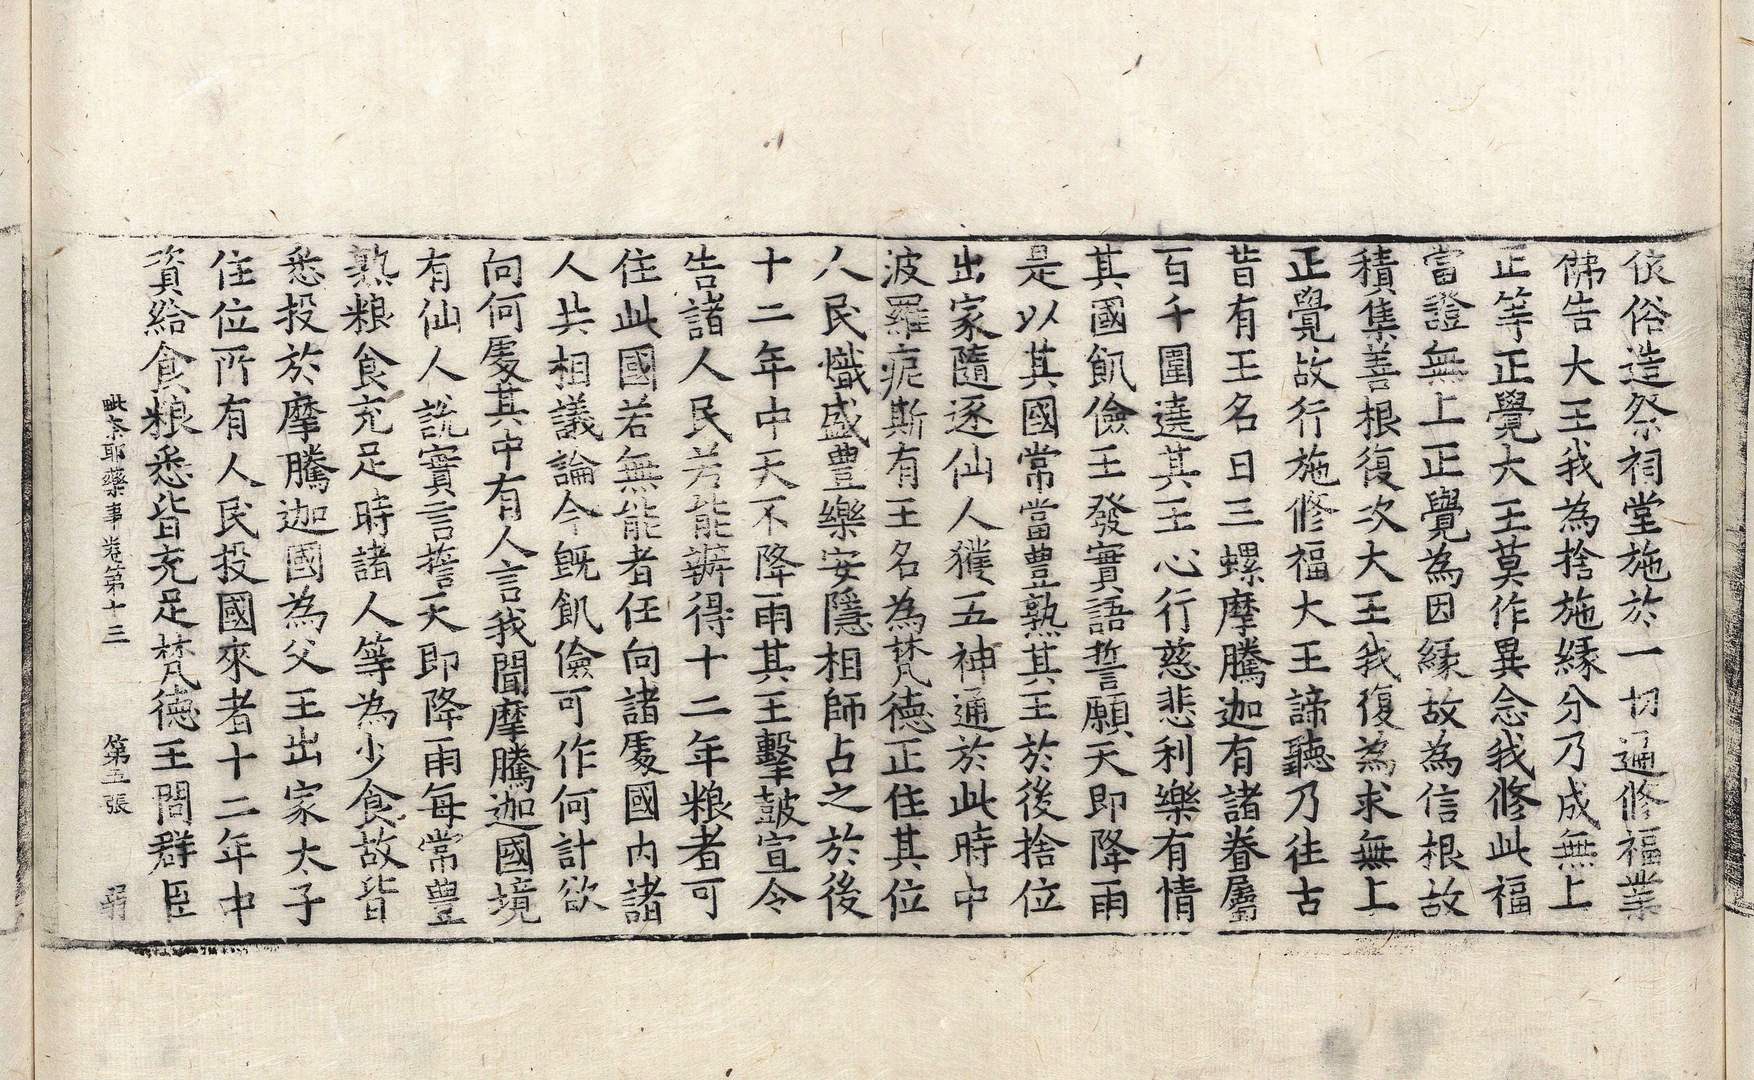 依俗造祭祠堂施於一切遍修福業
佛告大王我為捨施緣分乃成無上
正等正覺大王莫作異念我修此福
當證無上正覺為因緣故為信根故
積集善根復次大王我復為求無上
正覺故行施修福大王諦聽乃往古
昔有王名曰三螺摩騰迦有諸眷屬
百千圍遶其王心行慈悲利樂有情
其國飢儉王發實語誓願天即降雨
是以其國常當豊熟其王於後捨位
出家隨逐仙人獲五神通於此時中
波羅痆斯有王名為梵德正住其位
人民熾盛豊樂安隱相師占之於後
十二年中天不降雨其王擊鼓宣令
告諸人民若能辦得十二年粮者可
住此國若無能者任向諸處國內諸
人共相議論今既飢儉可作何計欲
向何處其中有人言我聞摩騰迦國境
有仙人說實言誓天即降雨每常豊
熟粮食充足時諸人等為少食故皆
悉投於摩騰迦國為父王出家太子
住位所有人民投國來者十二年中
資給食粮悉皆充足梵德王問群臣
毗奈耶藥事卷第十三 第五張 弱